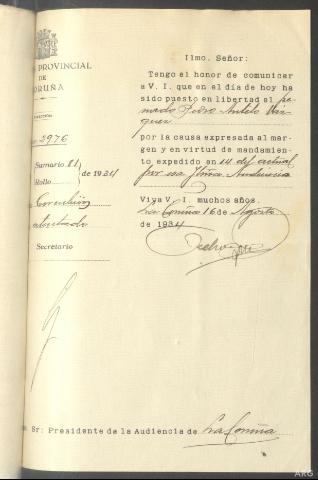 PROVINCIAL
DE
CORUÑA
2976
Sumario 81
Rollo
de 1934
Secretario
Ilmo. Señor:
Tengo el honor de comunicar
a V. I. que en el día de hoy ha
sido puesto en libertad el pe-
nado Pedro Antelo Váz-
quez
por la causa expresada al mar-
gen y en virtud de mandamien-
to expedido en 14 del actual
por esa Iltma. Audiencia
Viva V. I. muchos años.
La Coruña 16 de Agosto
de 1934
Sr: Presidente de la Audiencia de La Coruña
ARG